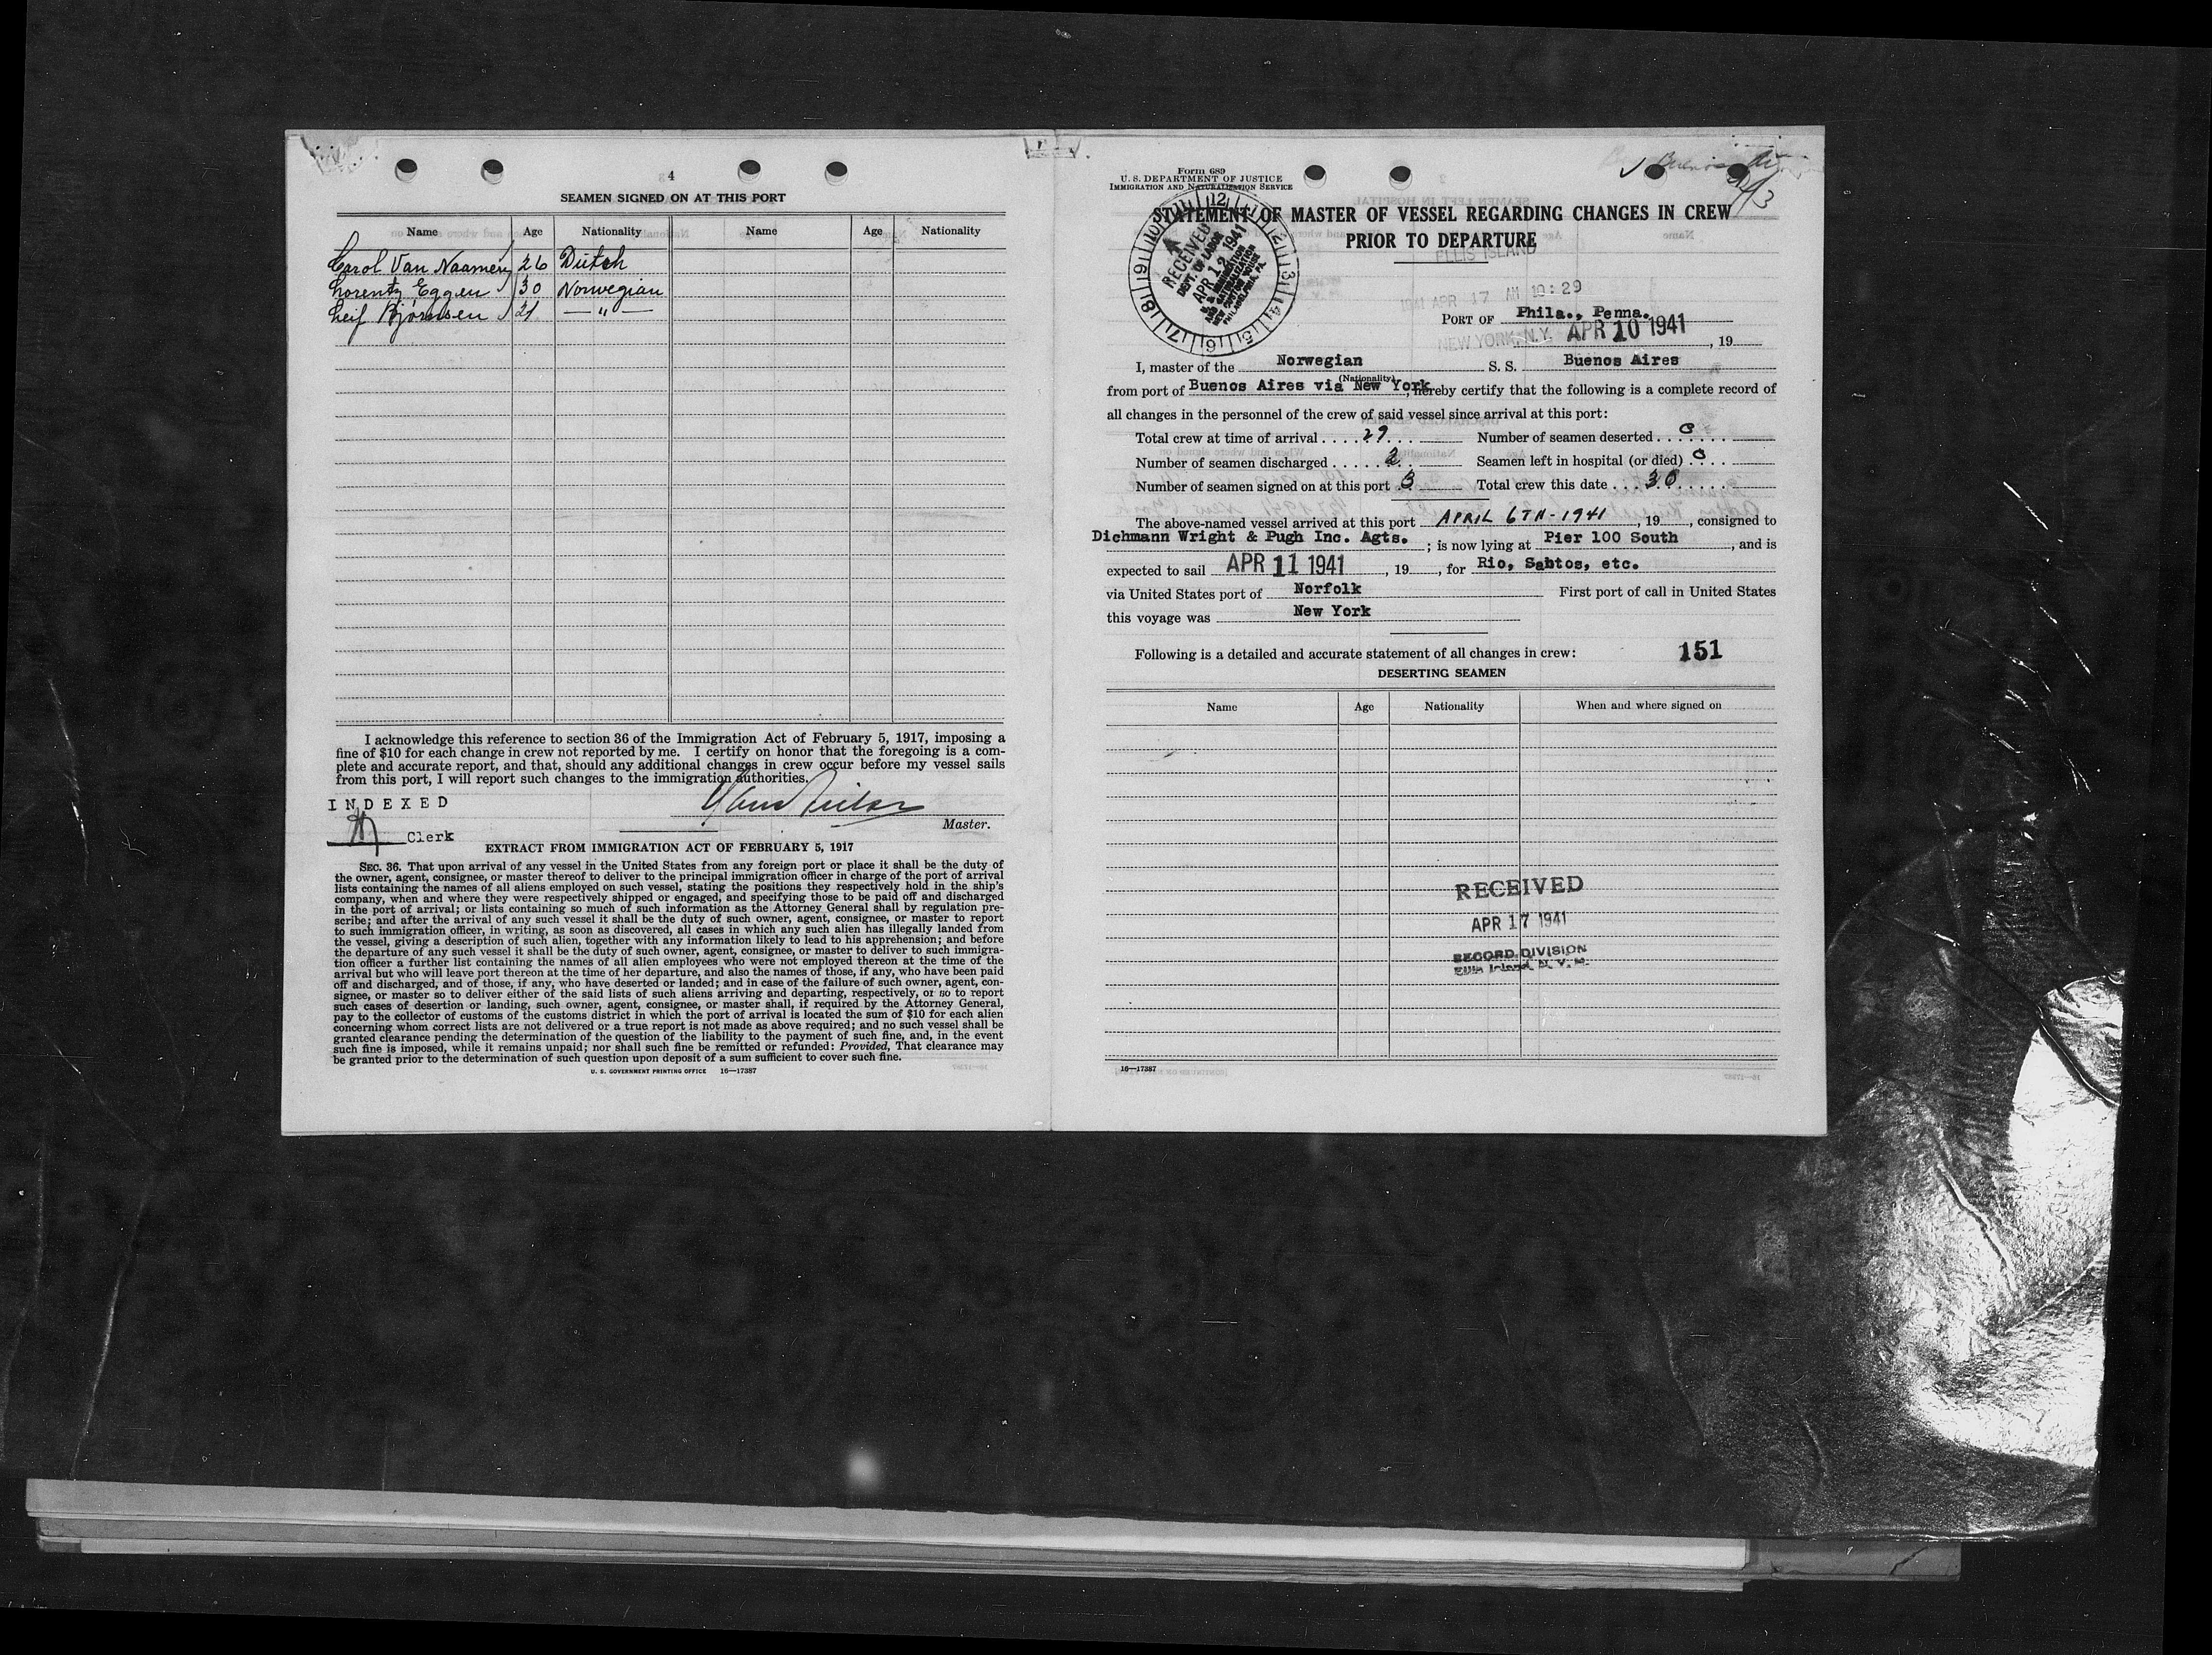 4
SEAMEN SIGNED ON AT THIS PORT
Name Age Nationality Name Age Nationality
Carol Van Naamen 26 Dutch
Lorentz Eggen 30 Norwegian
Leif Bjørnsen 21 — " —
I acknowledge this reference to section 36 of the Immigration Act of February 5, 1917, imposing a
fine of $10 for each change in crew not reported by me. I certify on honor that the foregoing is a com-
plete and accurate report, and that, should any additional changes in crew occur before my vessel sails
from this port, I will report such changes to the immigration authorities.
INDEXED
Clerk
Master.
EXTRACT FROM IMMIGRATION ACT OF FEBRUARY 5, 1917
SEC. 36. That upon arrival of any vessel in the United States from any foreign port or place it shall be the duty of
the owner, agent, consignee, or master thereof to deliver to the principal immigration officer in charge of the port of arrival
lists containing the names of all aliens employed on such vessel, stating the positions they respectively hold in the ship's
company, when and where they were respectively shipped or engaged, and specifying those to be paid off and discharged
in the port of arrival; or lists containing so much of such information as the Attorney General shall by regulation pre-
scribe; and after the arrival of any such vessel it shall be the duty of such owner, agent, consignee, or master to report
to such immigration officer, in writing, as soon as discovered, all cases in which any such alien has illegally landed from
the vessel, giving a description of such alien, together with any information likely to lead to his apprehension; and before
the departure of any such vessel it shall be the duty of such owner, agent, consignee, or master to deliver to such immigra-
tion officer a further list containing the names of all alien employees who were not employed thereon at the time of the
arrival but who will leave port thereon at the time of her departure, and also the names of those, if any, who have been paid
off and discharged, and of those, if any, who have deserted or landed; and in case of the failure of such owner, agent, con-
signee, or master so to deliver either of the said lists of such aliens arriving and departing, respectively, or so to report
such cases of desertion or landing, such owner, agent, consignee, or master shall, if required by the Attorney General,
pay to the collector of customs of the customs district in which the port of arrival is located the sum of $10 for each alien
concerning whom correct lists are not delivered or a true report is not made as above required; and no such vessel shall be
granted clearance pending the determination of the question of the liability to the payment of such fine, and, in the event
such fine is imposed, while it remains unpaid; nor shall such fine be remitted or refunded: Provided, That clearance may
be granted prior to the determination of such question upon deposit of a sum sufficient to cover such fine.
U. S. GOVERNMENT PRINTING OFFICE 16—17387
Form 689
U. S. DEPARTMENT OF JUSTICE
IMMIGRATION AND NATURALIZATION SERVICE
Buenos Ai
STATEMENT OF MASTER OF VESSEL REGARDING CHANGES IN CREW
PRIOR TO DEPARTURE
12 1 2 3 4 5 6 7 8 9 10 11
RECEIVED
DEPT. OF LABOR
APR 12 1941
PHILADELPHIA, PA.
ELLIS ISLAND
1941 APR 17 AM 10:29
NEW YORK, N.Y.
PORT OF Phila., Penna.
APR 10 1941, 19
I, master of the Norwegian S. S. Buenos Aires
(Nationality)
from port of Buenos Aires via New York, hereby certify that the following is a complete record of
all changes in the personnel of the crew of said vessel since arrival at this port:
Total crew at time of arrival .... 29 Number of seamen deserted .... 0
Number of seamen discharged ..... 2 Seamen left in hospital (or died) . 0
Number of seamen signed on at this port 3 Total crew this date ... 30
The above-named vessel arrived at this port APRIL 6TH-1941, 19, consigned to
Dichmann Wright & Pugh Inc. Agts.; is now lying at Pier 100 South, and is
expected to sail APR 11 1941, 19, for Rio, Sabtos, etc.
via United States port of Norfolk First port of call in United States
this voyage was New York
Following is a detailed and accurate statement of all changes in crew: 151
DESERTING SEAMEN
Name Age Nationality When and where signed on
RECEIVED
APR 17 1941
RECORD DIVISION
Ellis Island, N. Y. H.
16—17387